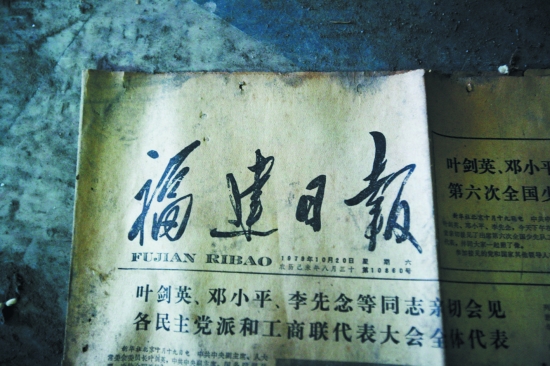 福建日报
FUJIAN RIBAO
1979年10月20日 星期六
农历己未年八月三十 第10860号
叶剑英、邓小平、李先念等同志亲切会见
各民主党派和工商联代表大会全体代表
新华社北京十月十九日电 中共中央副主席、人大
叶剑英、邓小平
第六次全国少